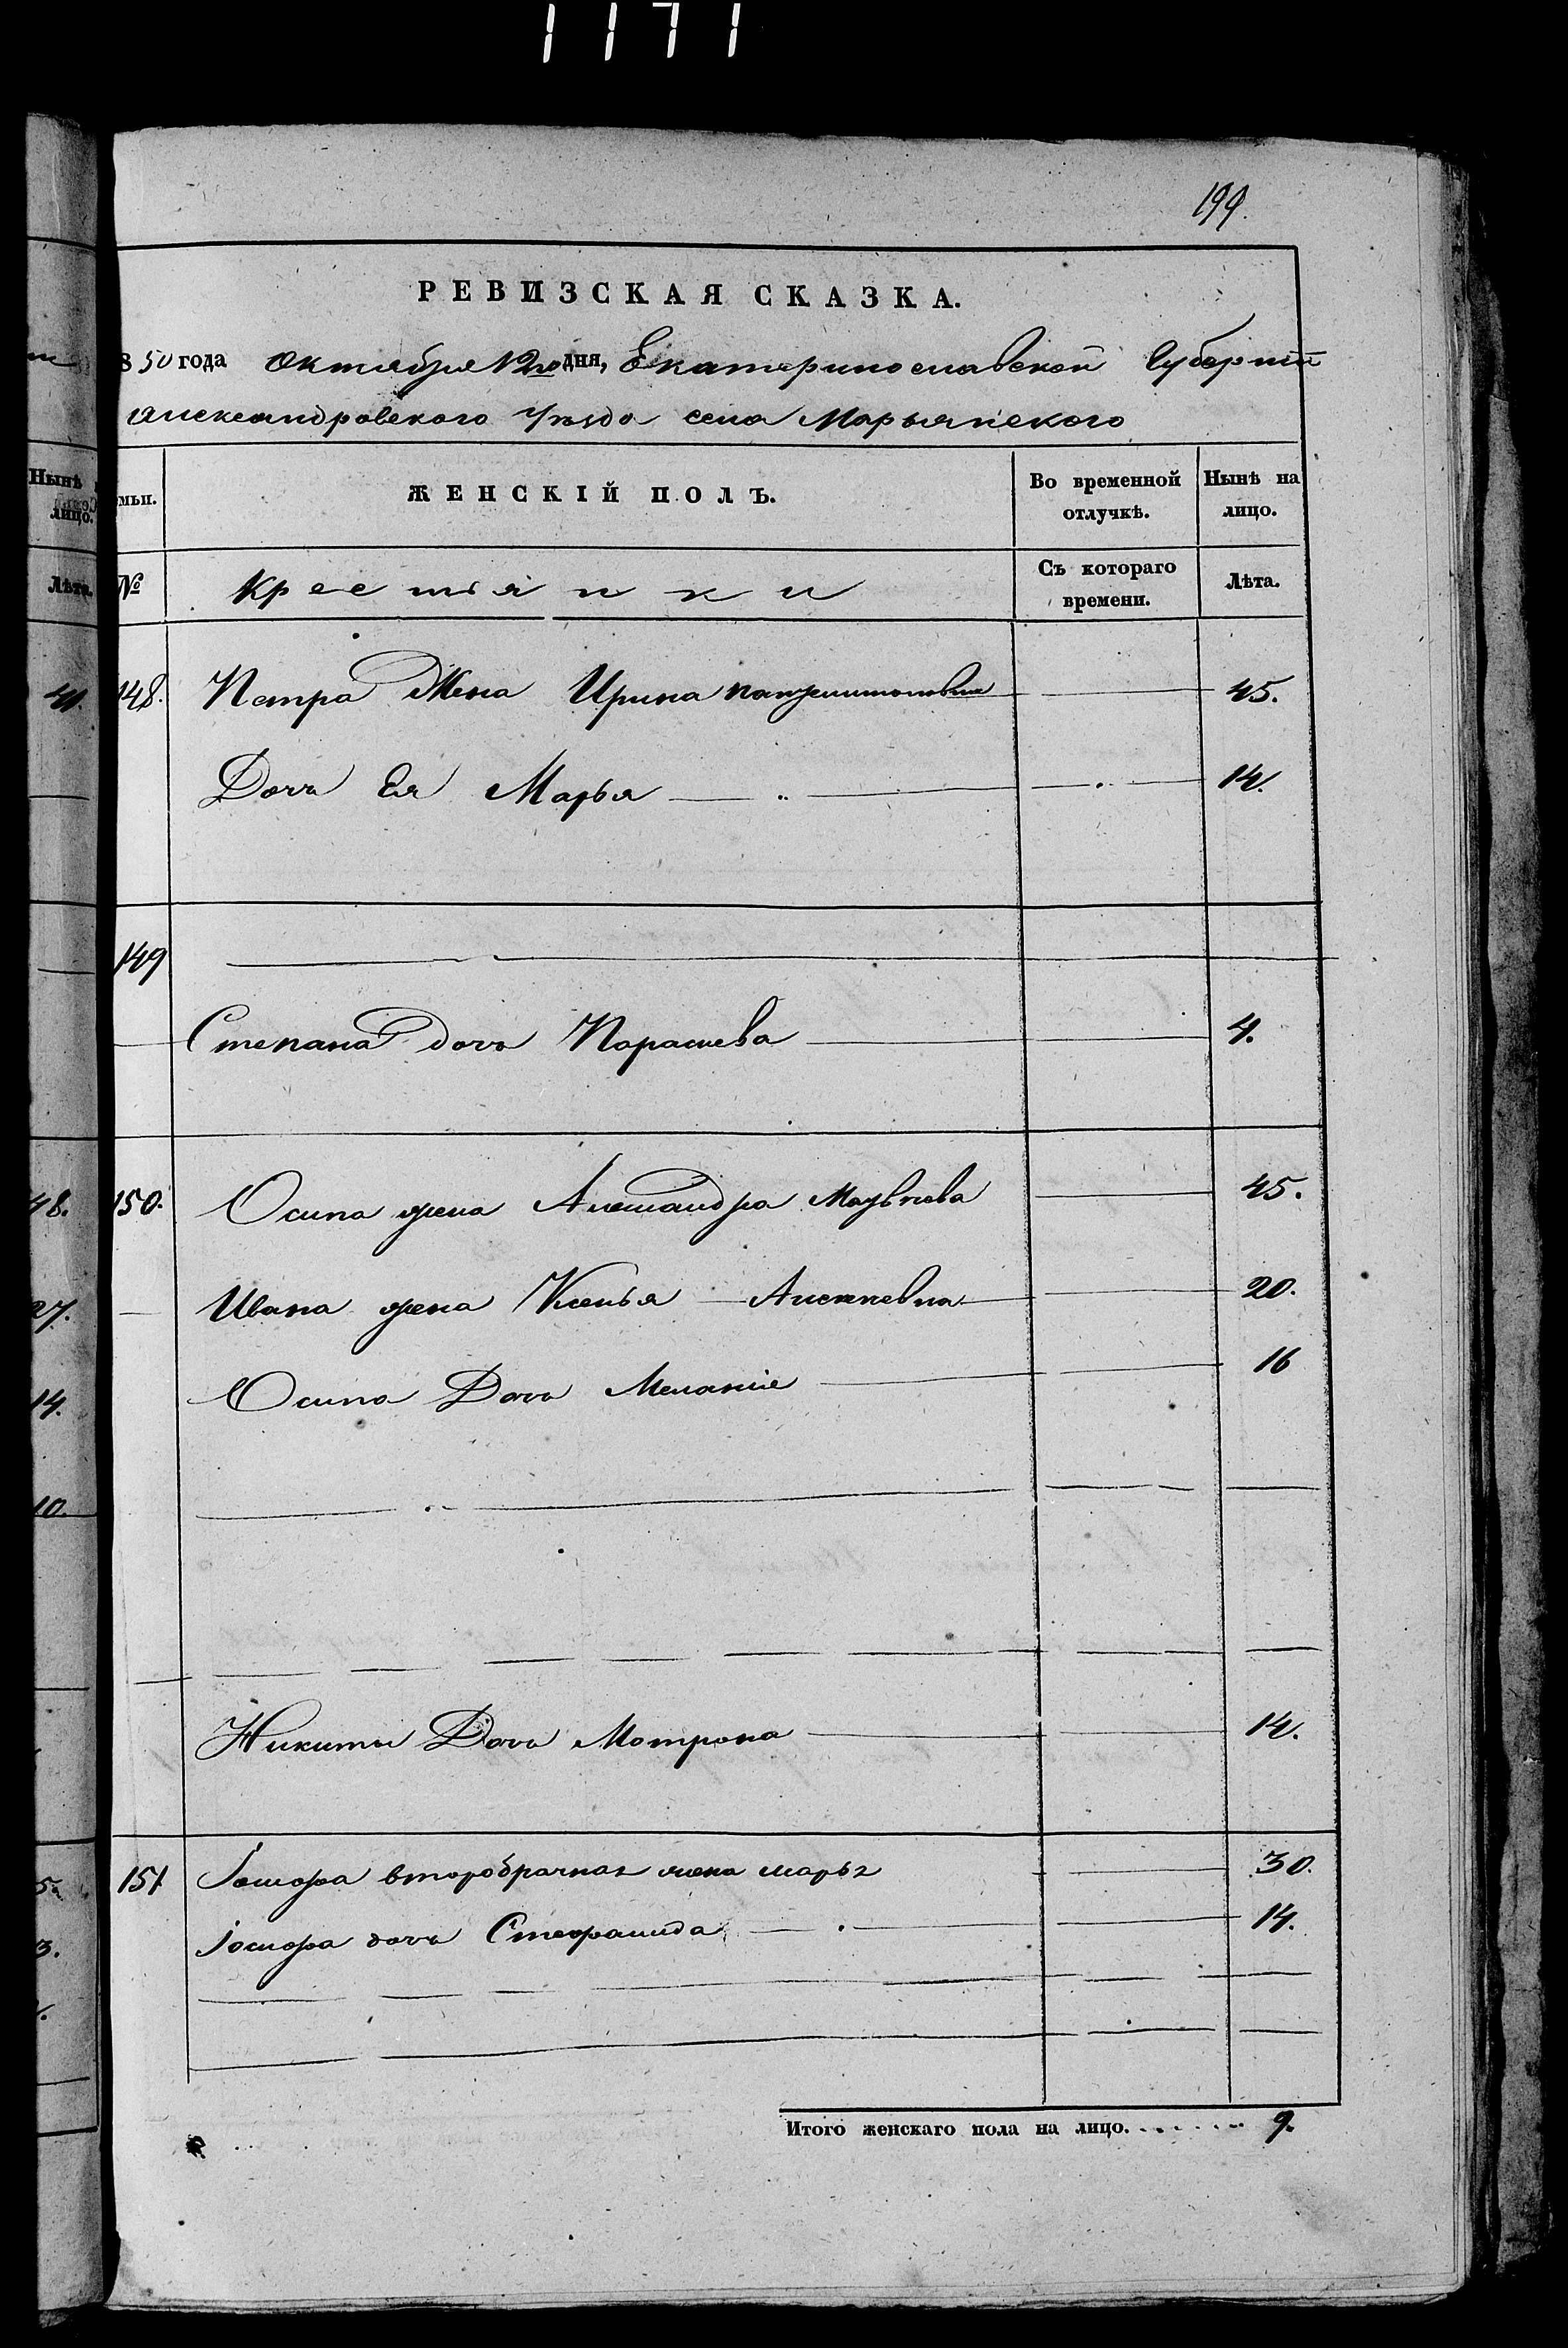 1171
199.
РЕВИЗСКАЯ СКАЗКА.
850 года Октября 12го дня, Екатеринославской Губернии
Александровского уѣзда села Марьянского
Нынѣ
лицо.
Лѣта.
мьи.
ЖЕНСКІЙ ПОЛЪ.
Во временной отлучкѣ.
Нынѣ на лицо.
№
Крестьянки
Съ котораго времени.
Лѣта.
41. 148. Петра Жена Ирина 45.
Дочь Ея Марья 14.
149
Степана дочь Параскева 4.
48. 150. Осипа жена Александра 45.
27. Ивана жена Ксенья Алексевна 20.
14. Осипа Дочь Меланіе 16
10.
Никиты Дочь Мотрона 14.
5. 151 второбрачная жена марья 30.
3. дочь Стефанида 14.
Итого женскаго пола на лицо. 9.